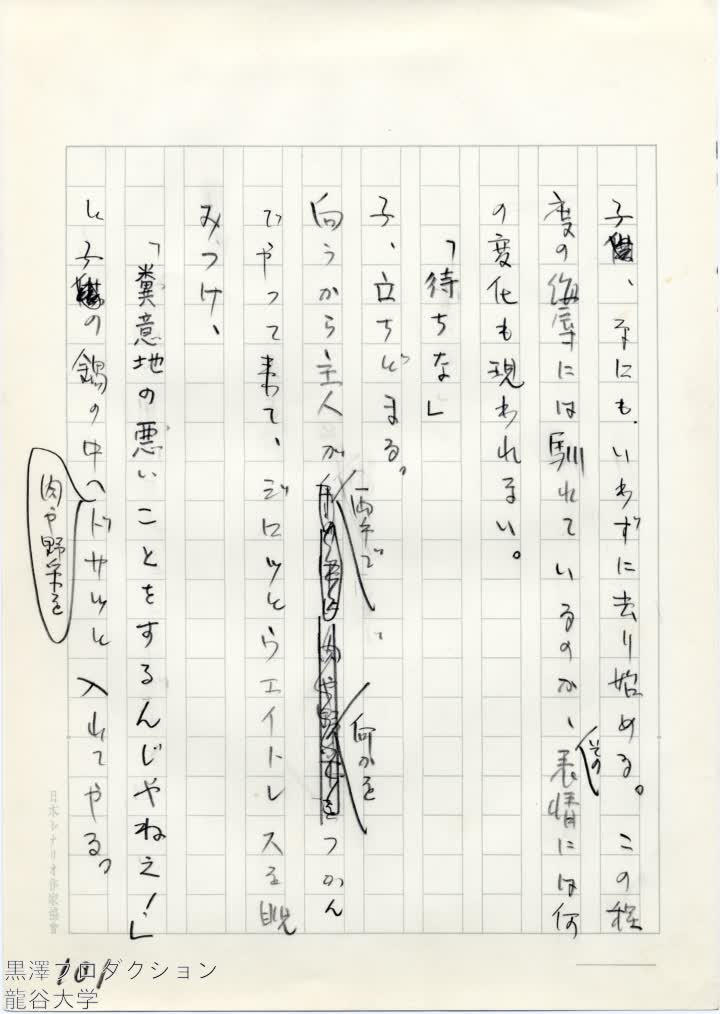 子、なにもいわずに去り始める。この程
度の侮辱には馴れているのか、その表情には何
の変化も現われない。
「待ちな」
子、立ちどまる。
向うから主人が両手で何かをつかん
でやって来て、ジロッとウエイトレスを睨
みつけ、
「糞意地の悪いことをするんじゃねえ！」
と子の鍋の中へ肉や野菜をドサッと入れてやる。
日本シナリオ作家協會
101
黒澤プロダクション
龍谷大学